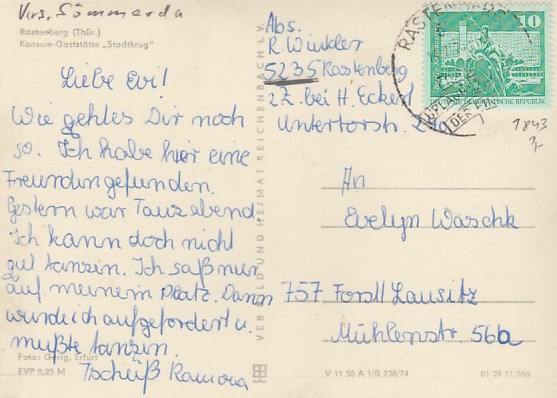 Krs. Sömmerda
Rastenberg (Thür.)
Konsum-Gaststätte „Stadtkrug"
Liebe Evi!
Wie gehles Dir noch
so. Ich habe hier eine
Freundin gefunden.
Gestern war Tanzabend
Ich kann doch nicht
gut tanzin. Ich saß nur
auf meinem Platz. Dann
wurde ich aufgefordert u.
mußte tanzin.
Tschüß Ramona
Foto: Gerig, Erfurt
EVP 0,25 M
VEB BILD UND HEIMAT REICHENBACH I. V.
Abs.
R. Winkler
5235 Rastenberg
z Z. bei H. Eckerl
Untertorstr.
RASTENBERG
10
DEUTSCHE DEMOKRATISCHE REPUBLIK
1843
An
Evelyn Waschk
757 Forst Lausitz
Mühlenstr 56a
V 11 50 A 1/B 238/74
01 09 11 065